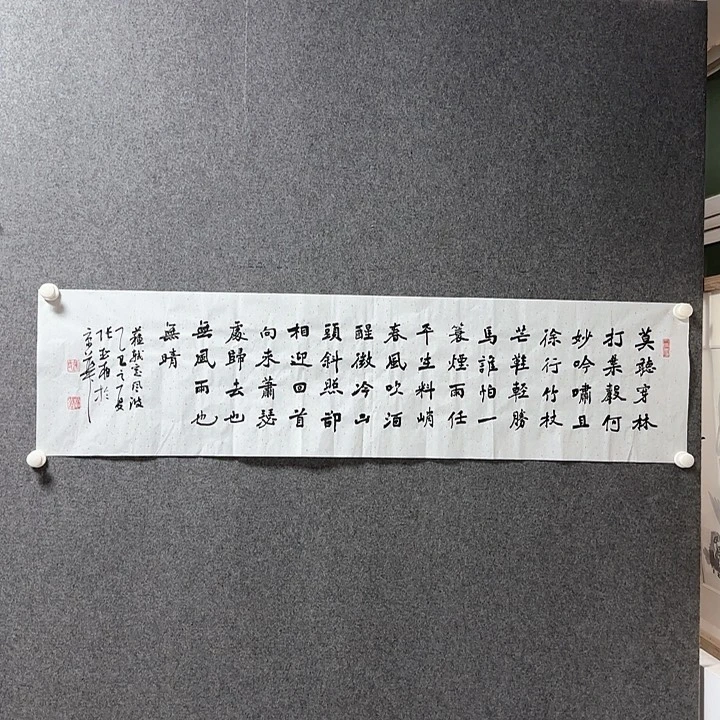 莫聽穿林
打集穀何
妙吟嘯且
徐行竹杖
芒鞋輕勝
馬誰怕一
蓑煙雨任
平生料峭
春風吹酒
醒微冷山
頭斜照卻
相迎回首
向來蕭瑟
處歸去也
無風雨也
無晴
蘓軾定风波
乙巳之夏
張於
京華